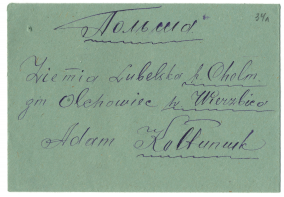 Польша
34л
Ziemia Lubelska p. Chełm.
gm. Olchowiec p. Wierzbica
Adam Kołtuniuk